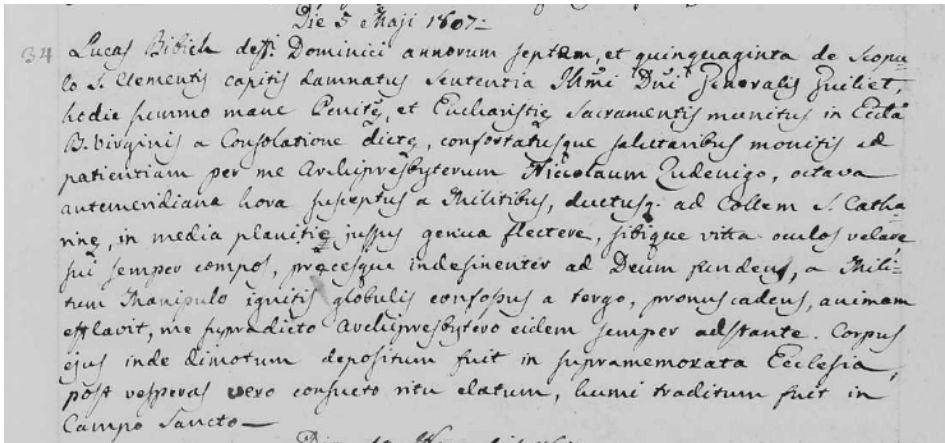 Die 5 Maji 1807=
34 Lucas Bibich deff: Dominici annorum septem, et quinquaginta de Scopu=
lo S. Clementis capitis damnatus Sententia Illmi Dni Generalis Guiliet,
hodie summo mane Penitę, et Eucharistię Sacramentis munitus in Eccla
B. Virginis a Consolatione dictę, confortatusque salutaribus monitis ad
patientiam per me Archipresbyterum Niccolaum Zudenigo, octava
antemeridiana hora susceptus a Militibus, ductusq. ad Collem S. Catha=
rinę, in media planitie jussus genua flectere, sibique vitta oculos velare
sui semper compos, pręcesque indesinenter ad Deum fundens, a Mili=
tum Manipulo ignitis globulis confossus a tergo, pronus cadens, animam
efflavit, me supradicto Archipresbytero eidem semper adstante. Corpus
ejus inde dimotum depositum fuit in supramemorata Ecclesia,
post vesperas vero consueto ritu elatum, humi traditum fuit in
Campo Sancto—